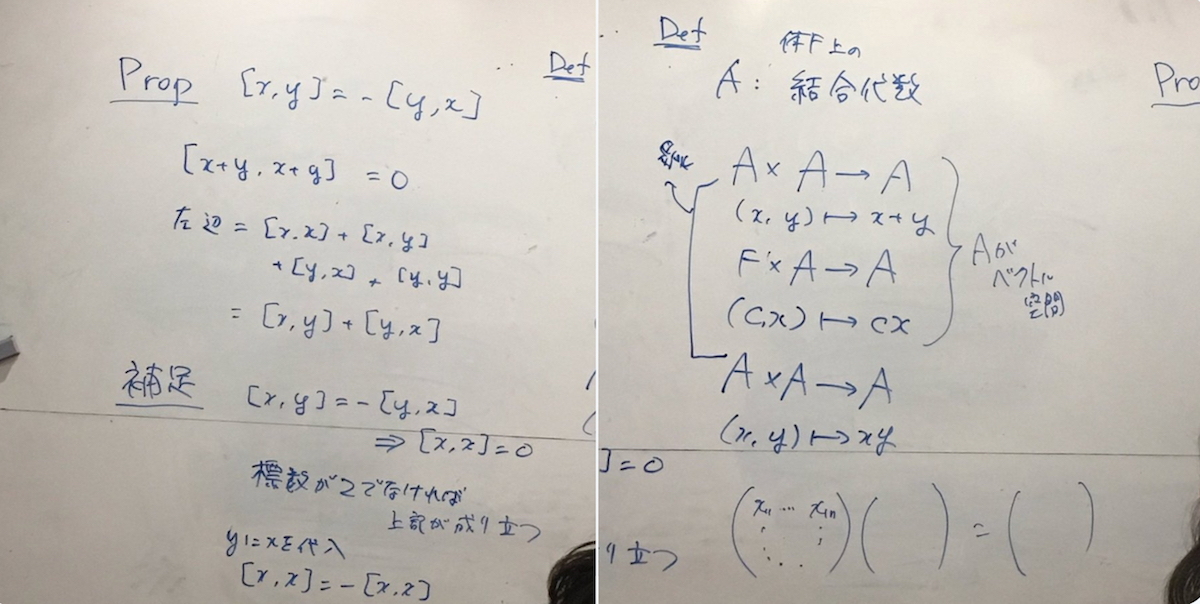 Prop [x,y]=-[y,x]
[x+y, x+y] =0
左辺 = [x.x] + [x,y]
+ [y,x] + [y,y]
= [x,y] + [y,x]
補足 [x,y]=-[y,x]
⇒ [x,x]=0
標数が2でなければ
上記が成り立つ
yにxを代入
[x,x]=-[x,x]
Def
Def
体F上の
A: 結合代数
A × A → A
(x, y) ↦ x+y
F × A → A
(c,x) ↦ cx
Aが
ベクトル
空間
A × A → A
(x, y) ↦ xy
]=0
り立つ
(x₁₁ … x₁ₙ) ( ) = ( )
Pro